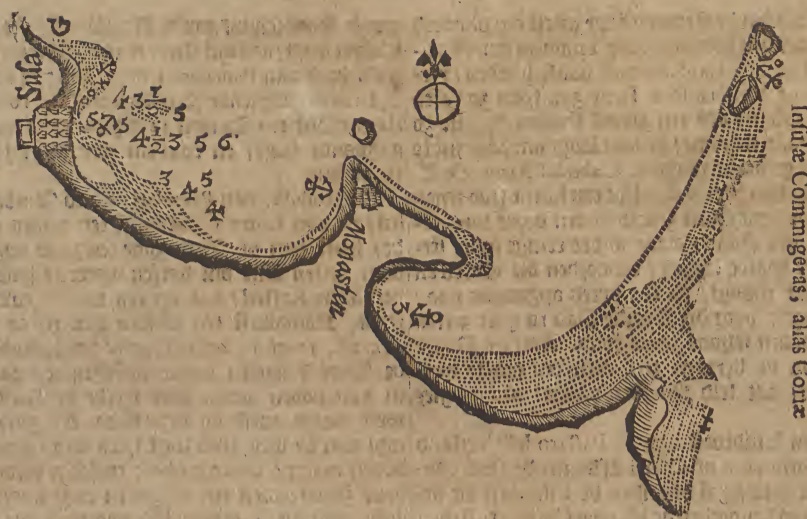 G
Suſa
4 3 1/2 5
5 5
4 1/2 3 5 6
3 5
4 4
Monasten
3
Inſulæ Commigeras, alias Coniæ